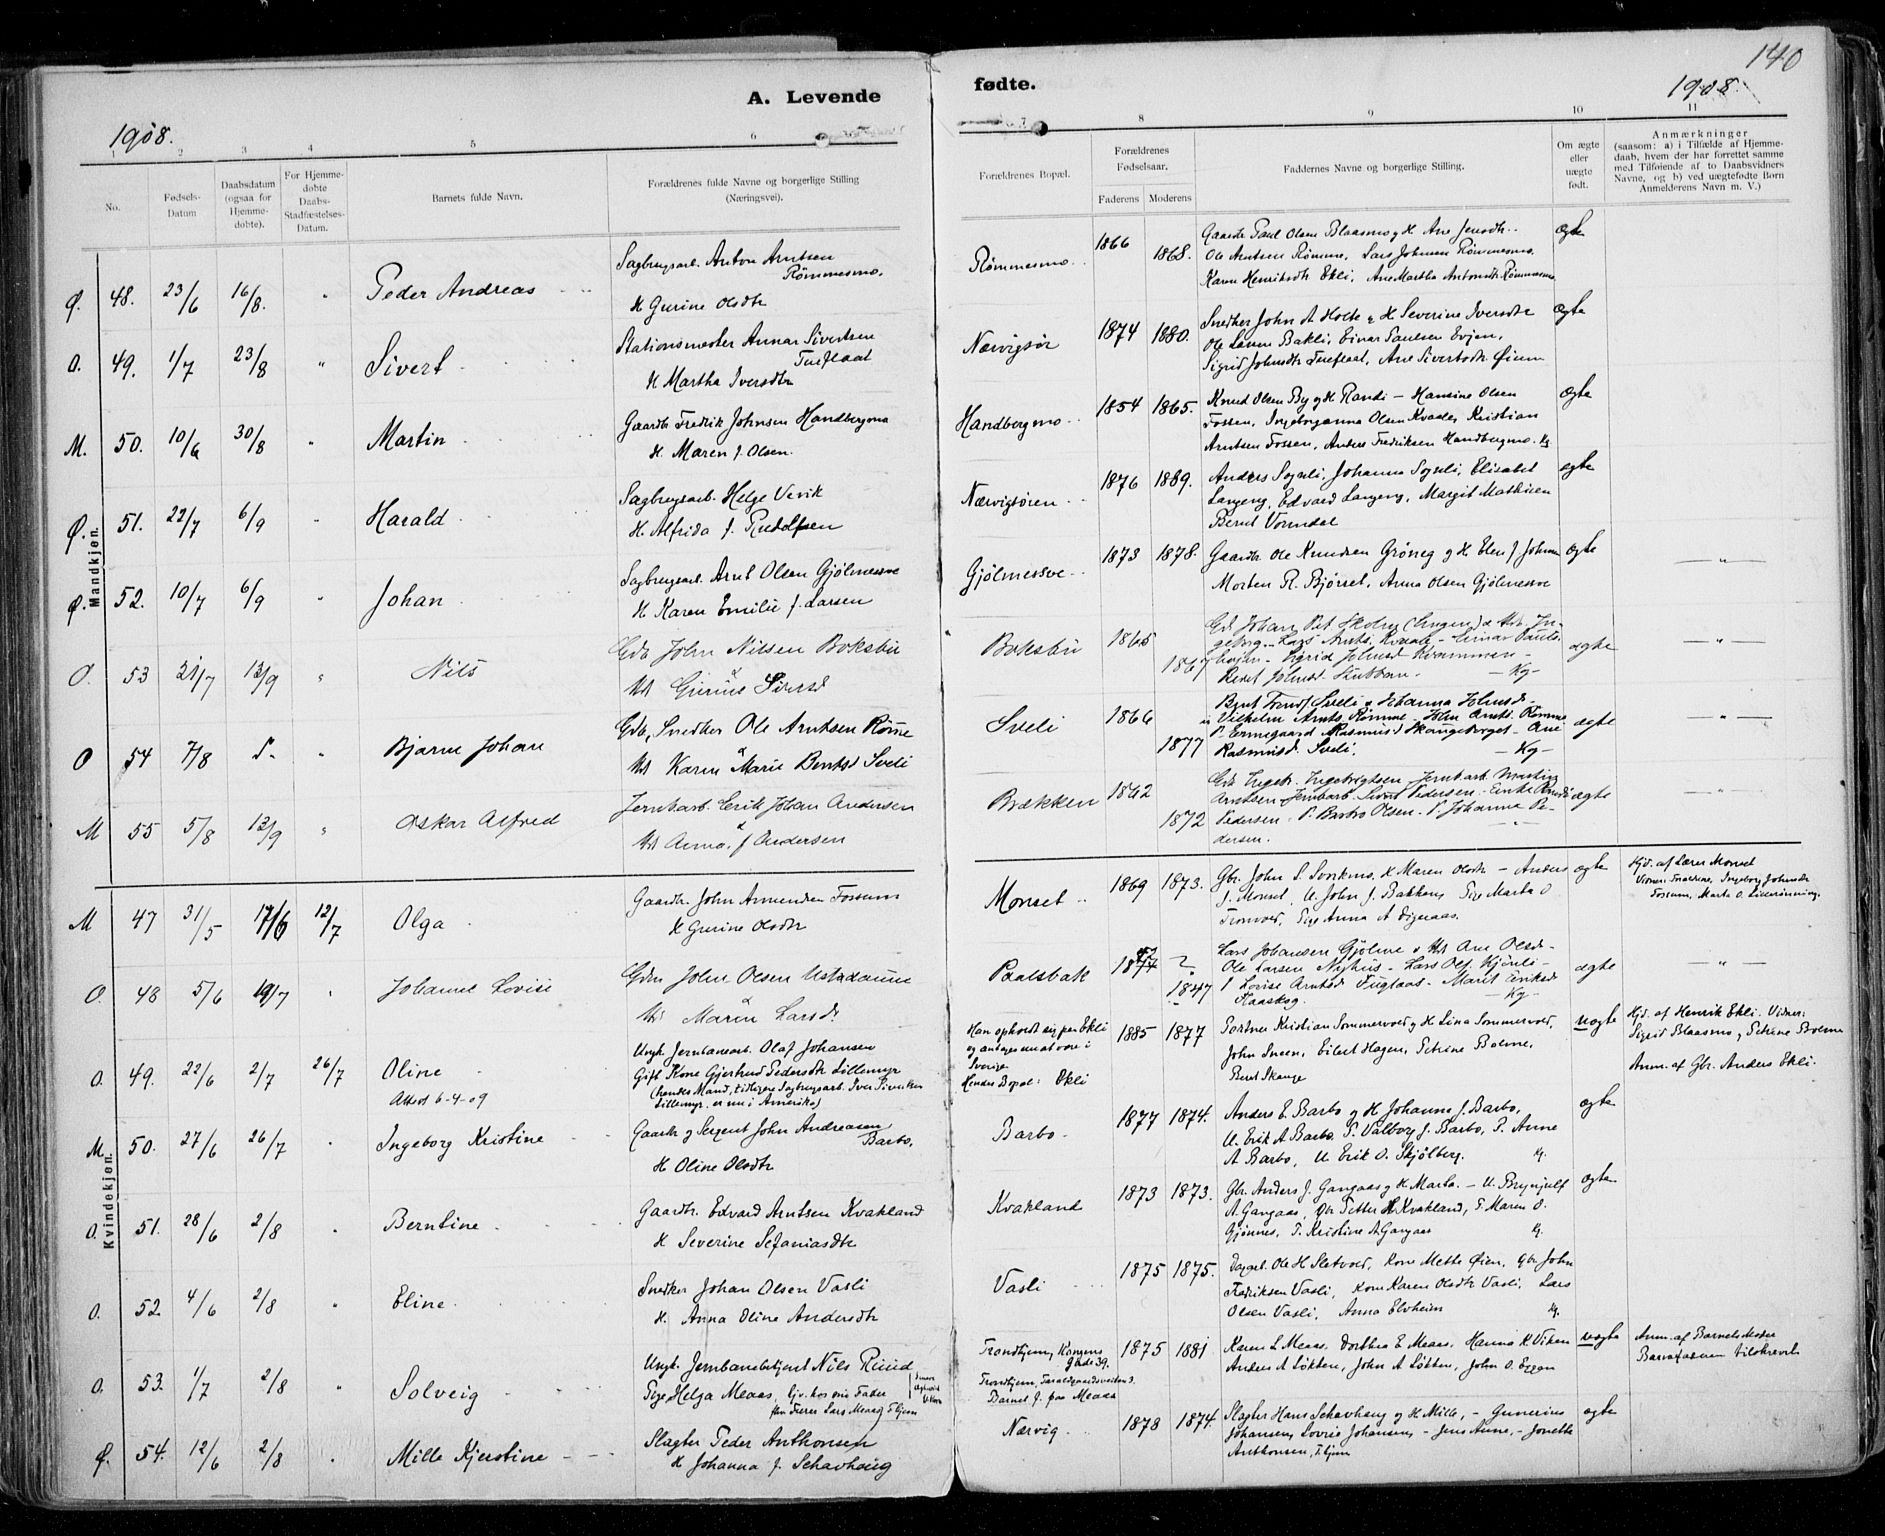 140
A. Levende
fødte.
1908.
1908.
1 2 3 4 5 6
7 8 9 10 11
No.
Fødsels-Datum
Daabsdatum (ogsaa for Hjemmedøbte).
For Hjemmedøbte Daabs-Stadfæstelses-Datum.
Barnets fulde Navn.
Forældrenes fulde Navne og borgerlige Stilling (Næringsvei).
Forældrenes Bopæl.
Forældrenes Fødselsaar.
Faderens
Moderens
Faddernes Navne og borgerlige Stilling.
Om ægte eller uægte født.
Anmærkninger
(saasom: a) i Tilfælde af Hjemmedaab, hvem der har forrettet samme med Tilføiende af to Daabsvidners Navne, og b) ved uægtefødte Børn Anmelderens Navn m. V.)
Mandkjøn.
Ø. 48. 23/6 16/8. " Peder Andreas
Sagbrugsarb. Anton Arntsen Rømmesmo.
H Gurine Olsdtr
Rømmesmo. 1866 1868.
Gaardbr Paul Olsen Blaasmo og H Ane Jensdtr.
Ole Arntsen Rømme, Lars Johnsen Rømmesmo.
Karen Henriksdtr Ekli, Ane Martha Antonsdtr Rømmesmo
ægte
O. 49. 1/7 23/8 " Sivert
Stationsmester Annar Sivertsen
H Martha Iversdtr
Nærvigsør 1874 1880.
Snedker John A Holte & H Severine Iversdtr
Ole Larsen Bakli, Einar Paulsen Evjen,
Sigrid Johnsdtr, Ane Sivertsdtr Øium
ægte
M. 50. 10/6 30/8 " Martin
Gaardb Fredrik Johnsen Handbergmo
H. Maren f. Olsen.
Handbergmo 1854 1865.
Knud Olsen By og H Randi – Hansine Olsen
Fossen, Ingeborganna Olsen Kvaale, Kristian
Arntsen Fossen, Anders Fredriksen Handbergmo. Kg
ægte
Ø. 51. 22/7 6/9 " Harald
Sagbrugsarb. Helge Vevik
H. Alfrida f. Rudolfsen
Nærvigsøren 1876 1889.
Anders Sogseli, Johanna Sogseli, Elisabet
Langeng, Edvard Langeng, Margit Mathisen
Bernt Vormdal
ægte
Ø. 52. 10/7 6/9 " Johan
Sagbrugsarb. Arnt Olsen Gjølmessve
H Karen Emilie f. Larsen
Gjølmessve 1873 1878.
Gaardb. Ole Knudsen Grøneg og H Elen f Johnsen
Morten R. Bjørset, Anna Olsen Gjølmesve
ægte – " –
O. 53 21/7 13/9 " Nils
Gdb John Nilsen Boksbu
Boksbu 1865 1867
Gdb Johan Pet
ægte – " –
O 54 7/8 " Bjarne Johan
Gdb, Snedker Ole Arntsen Rømme
H Karen Marie Berntsd Sveli
Sveli 1866 1877
Vilhelm Arnts. Rømme – John Arnts. Rømme
Rasmusd. Sveli. – Kg –
ægte – " –
M 55 5/8 13/9 " Oskar Alfred
Jernbarb. Erik Johan Andersen
H Anna f Andersen
Brækken 1862 1872
Gdb Ingebr. Ingebrigtsen – Jernbarb. Martin
Arntsen – Jernbarb. Sivert Pedersen – Enke Randi
Pedersen – P. Barbro Olsen – P Johanna Pedersen.
ægte – " –
Kvindekjøn.
M 47 31/5 17/6 12/7 Olga
Gaardb John Amundsen Fossum
H Gurine Olsdtr
Monset 1869 1873.
Gbr. John L Svorkmo, H Maren Olsdtr – Anders
J. Monset, U. John J. Bakken, Pige Marta O
Tronvold, Pige Anna A Digeraas.
ægte
Hjd. af Lærer Monset
Vidner: Ingeborg Johnsdtr
Fossum, Marta O. Lillerønning.
O. 48 5/6 19/7 " Johanne Lovise
Gdbr John Olsen
H Maren Larsd.
Paalsbak ? 1847
Lars Johansen Gjølme & H Ane Olsd –
Ole Larsen Nyhus – Lars Olss. Kjønli –
P Lovise Arntsd Fuglaas – Marit Eriksd
Haaskog. – Kg –
ægte – " –
O. 49. 22/6 2/7 26/7 Oline
Attest 6-4-09
Ungk. Jernbanearb. Olaf Johansen
Gift Kone Gjertrud Pedersdtr Lillemyr
(hendes Mand, tidligere Sagbrugsarb. Iver Sivertsen
Lillemyr er nu i Amerika)
Han opholdt sig paa Ekli
og antages nu at være i
Sverige
Hendes Bopæl: Ekli
1885 1877
Portner Kristian Sommervold og H Lina Sommervold,
John Sneen, Eilert Hagen, Petrine Bolme,
Beret Skauge
uægte
Hjd. af Henrik Ekli. Vidner:
Sigrid Blaasmo, Petrine Bolme
Anm. af Gbr. Anders Ekli.
M. 50. 27/6 26/7 " Ingeborg Kristine
Gaardbr og Sergent John Andreasen Barbo,
H Oline Olsdtr
Barbo 1877 1874.
Anders E. Barbo og H Johanne J. Barbo,
U. Erik A Barbo, P. Valborg J. Barbo, P. Anne
A Barbo, U. Erik O. Skjølberg. Kg.
ægte
O. 51. 28/6 2/8 " Berntine
Gaardbr. Edvard Arntsen Kvakland
H Severine Sefaniasdtr
Kvakland 1873 1873.
Gbr. Anders J. Gangaas og H Marta – U. Brynjulf
A. Gangaas, Gbr Petter H Kvakland, P. Maren O.
Gjønnes, P. Kristine A Gangaas Kg.
ægte
O. 52. 4/6 2/8 " Eline
Snedker Johan Olsen Vasli
H. Anna Oline Andersdtr
Vasli 1875 1875.
Ole H Sletvold, Kone Mette Øien, Gbr John
Fredriksen Vasli, Kone Karen Olsdtr Vasli, Lars
Olsen Vasli, Anna Elvheim Kg.
O. 53. 1/7 2/8 " Solveig
Ungk. Jernbanebetjent Nils Ruud
Pige Helga Meaas, hj. hos sin Fader
Lars Meaas, T.hjem
Trondhjem, Kongens
Gade 39.
Barnet f. paa Meaas
1875 1881
Karen L Meaas, Dorthea E Meaas, Hanna K Viken
Anders A Løkken, John A Løkken, John O. Eggen
uægte
Anm. af Barnets Moder
Barnefaderen tilskrevet
Ø. 54. 12/6 2/8 " Mille Kjerstine
Slagter Peder Anthonsen
H Johanna f. Schavhaug
Nærvig 1878 1874.
Slagter Hans Schavhaug og H Mille, – Gunerius
Johansen, Lovise Johansen, – Jens Aune, – Jonette
Anthonsen, T.hjem
ægte